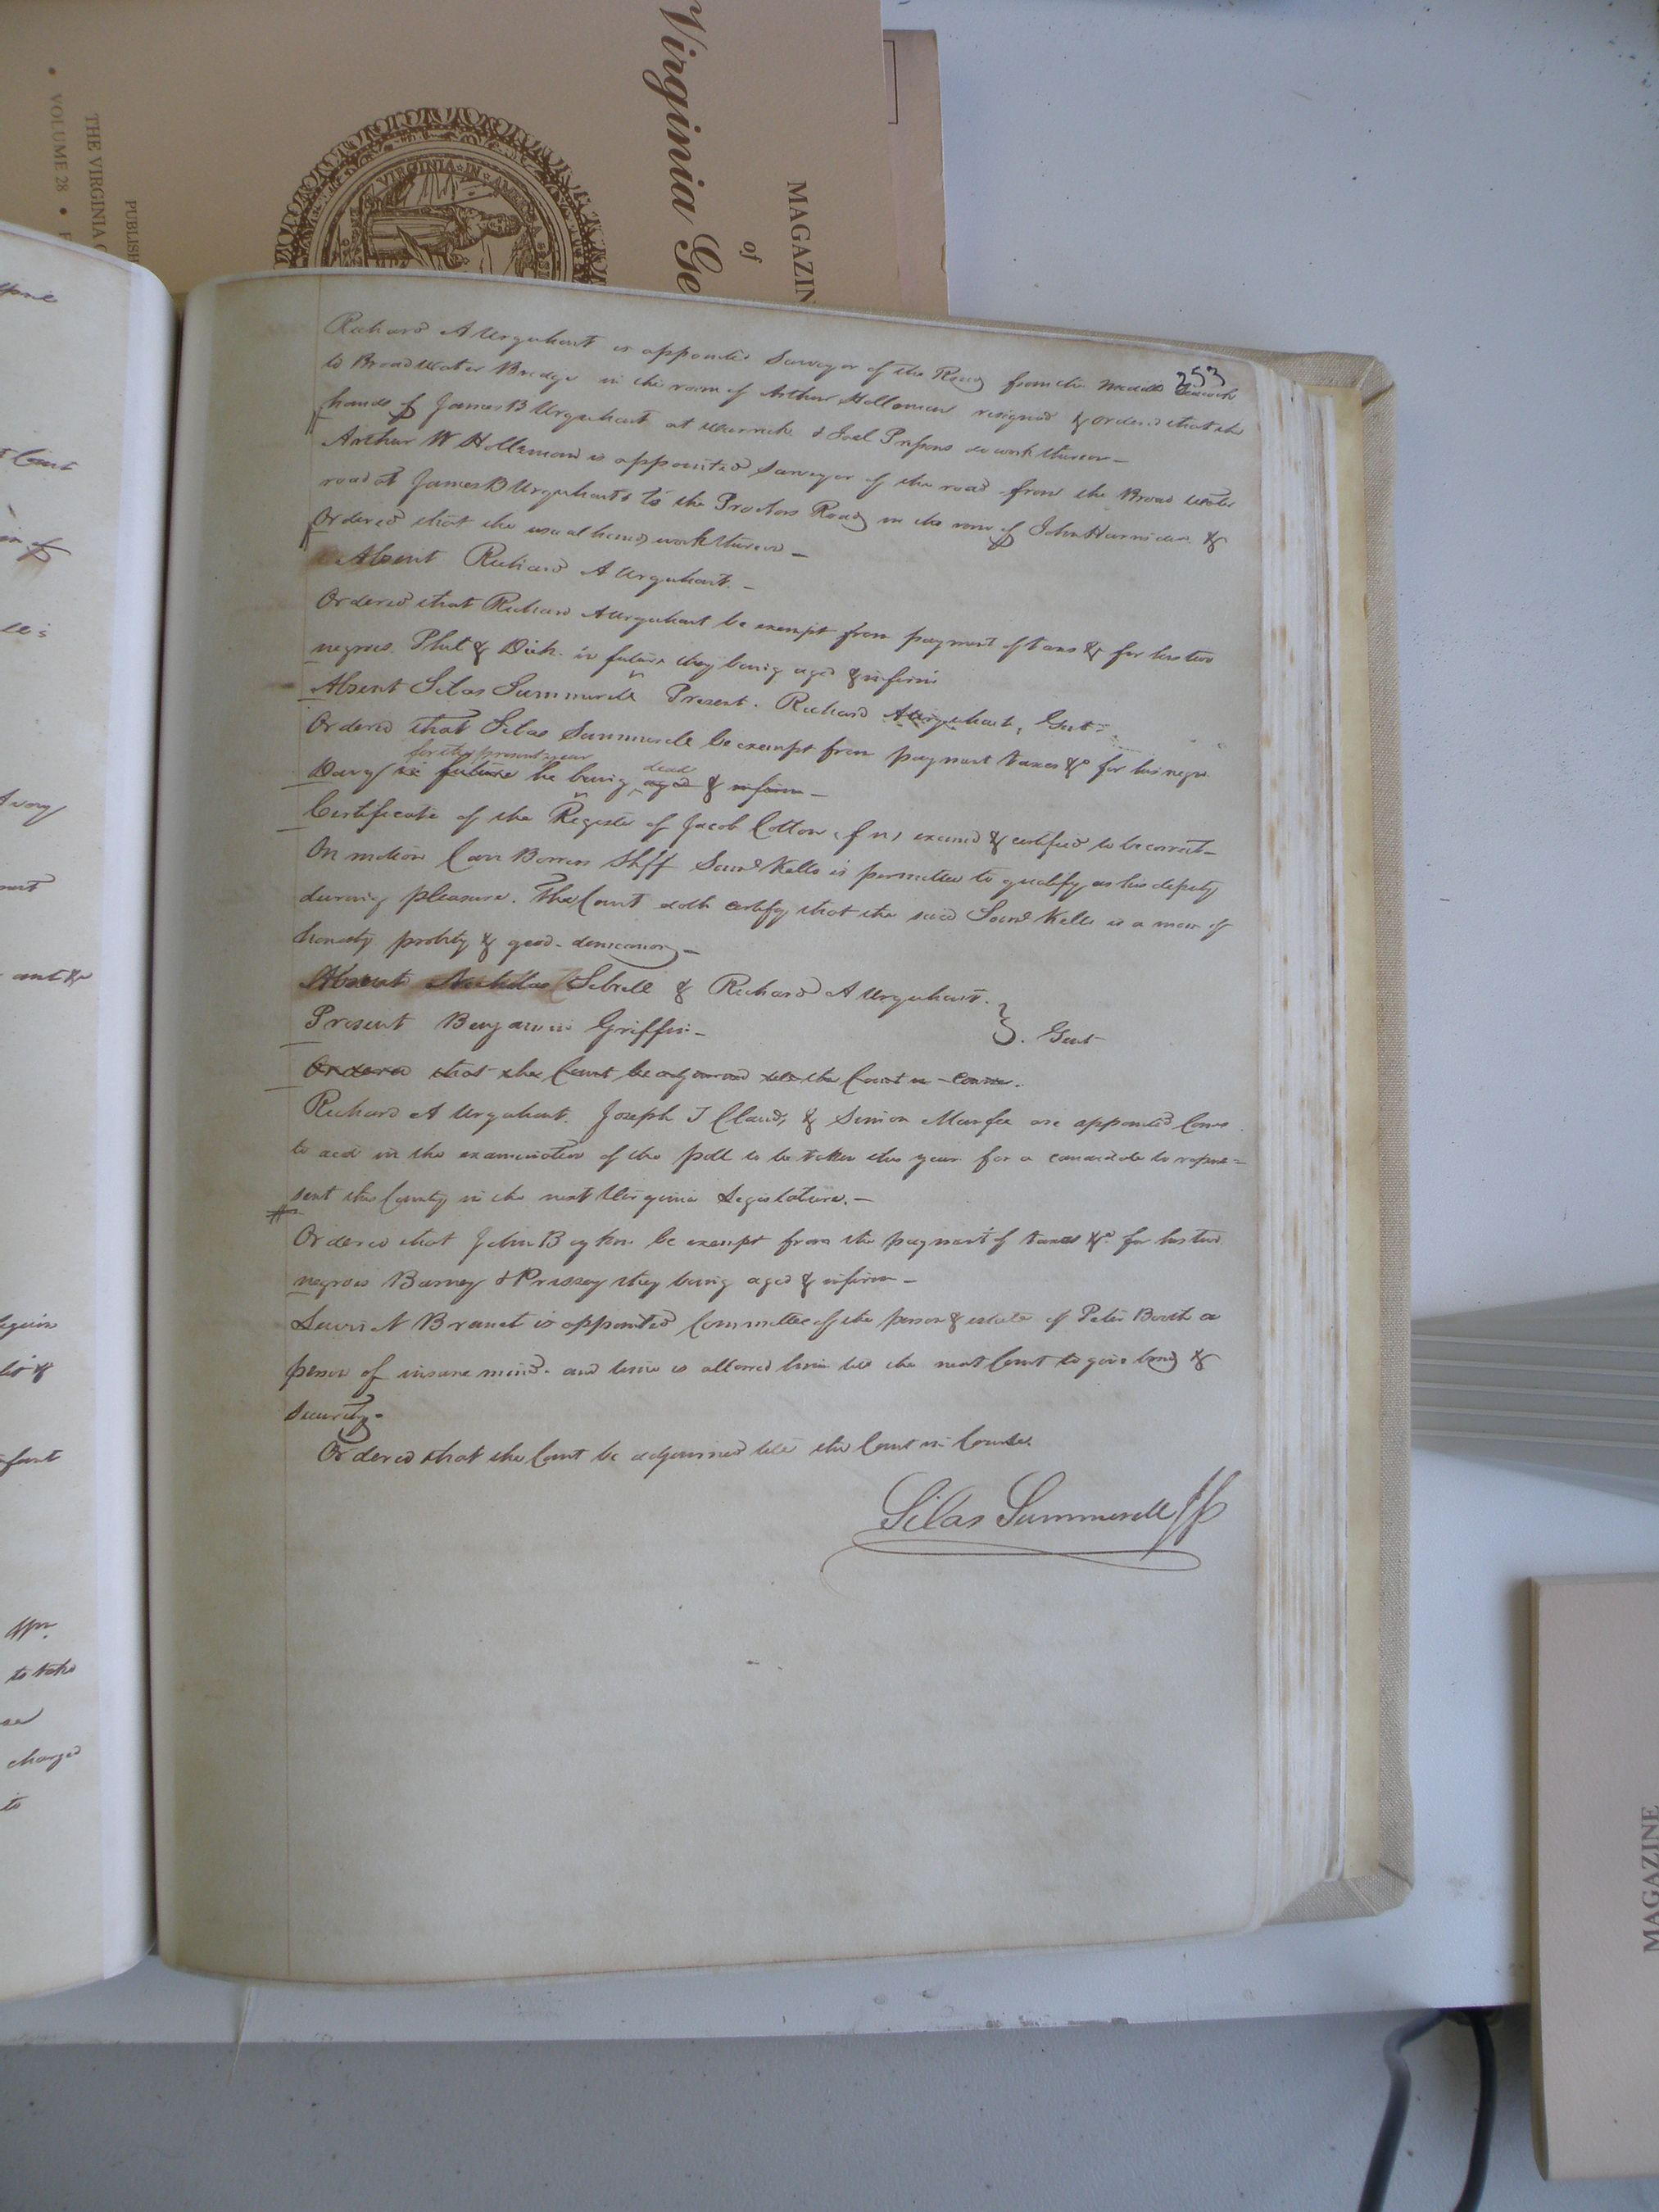 Virginia Ge
MAGAZIN
of
PUBLISH
THE VIRGINIA G
• VOLUME 28 •
VIRGINIA IN
253
Richard A Urquhart is appointed Surveyor of the Road from the
to Broad Water Bridge in the room of Arthur Holleman resigned & ordered that the
hands of James B Urquhart at & Joel do work thereon —
Arthur W Holleman is appointed Surveyor of the road from the Broad Water
road at James B Urquharts to the Proctors Road in the room of John &
Ordered that the usual hands work thereon —
Absent Richard A Urquhart. —
Ordered that Richard A Urquhart be exempt from payment of taxes &c for his two
negroes & Dick in future they being aged & infirm
Absent Silas Summerell Present. Richard A Urquhart, Gent
Ordered that Silas Summerell be exempt from payment taxes &c for his negro
for the present year dead
Davy in future he being aged & infirm —
Certificate of the Register of Jacob Cotton (f n) examd & certified to be correct —
On motion Carr Bowers Shff Saml Kello is permitted to qualify as his deputy
during pleasure. The Court doth certify that the said Saml Kello is a man of
honesty probity & good demeanor —
Absent Nicholas Sebrell & Richard A Urquhart.
Present Benjamin Griffin — } Gent
Ordered that the Court be adjourned till the Court in Course.
Richard A Urquhart. Joseph T Claud, & Simon Murfee are appointed Coms
to aid in the examination of the poll to be taken this year for a candidate to repre=
sent this County in the next Virginia Legislature. —
Ordered that John Boykin be exempt from the payment of taxes &c for his two
negroes Barney & Prissey they being aged & infirm —
Lewis N Branch is appointed Committee of the person & estate of Peter Booth a
person of insane mind. and time is allowed him till the next Court to give bond &
security —
Ordered that the Court be adjourned till the Court in Course
Silas Summerell JP
Court
charged
to
MAGAZINE